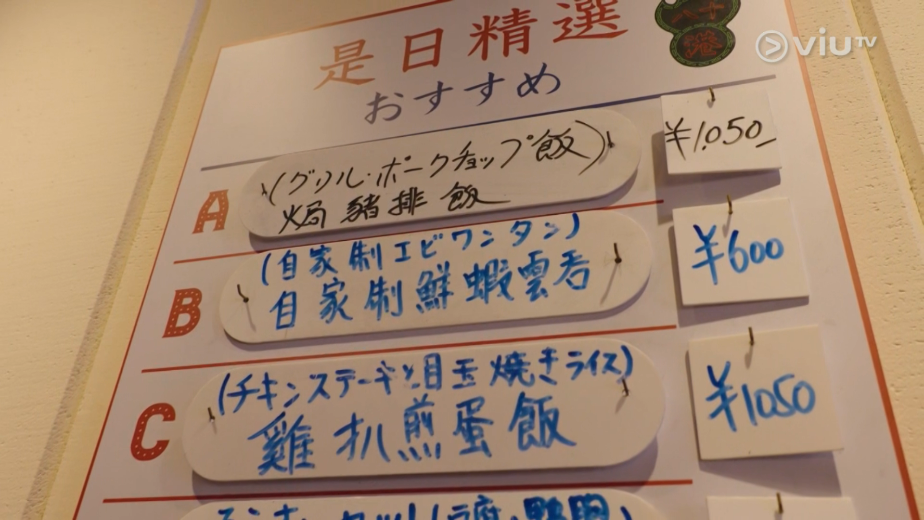 是日精選
おすすめ
viuTV
A
(グリル・ポークチョップ飯)
焗豬排飯
¥1,050
B
(自家制エビワンタン)
自家制鮮蝦雲吞
¥600
C
(チキンステーキと目玉焼きライス)
雞扒煎蛋飯
¥1050